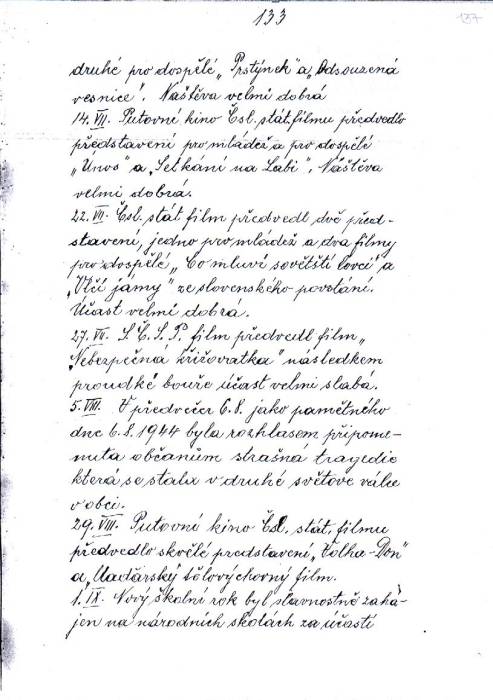 133
137
druhé pro dospělé „Prstýnek" a „Odsouzená
vesnice". Naštěva velmi dobrá
14. VII. Putovní kino Čsl. stát. filmu předvedlo
představení pro mládež a pro dospělé
„Únos" a „Setkání na Labi". Náštěva
velmi dobrá.
22. VII. Čsl. stát film předvedl dvě před-
stavení, jedno pro mládež a dva filmy
pro zdospělé „Co mluví sovětští lovci" a
„Vlčí jámy" ze slovenského povstání.
Účast velmi dobrá.
27. VII. S. Č. S. P. film předvedl film „
Nebezpečná křižovratka" následkem
proudké bouře účast velmi slabá.
5. VIII. V předvečer 6. 8. jako pamětného
dne 6. 8. 1944 byla rozhlasem připome-
nuta občanům strašná tragedie
která se stala v druhé světové válce
v obci.
29. VIII. Putovní kino Čsl. stát. filmu
předvedlo skvělé predstavení „Volha-Don"
a „Maďarský tělovýchovný film.
1. IX. Nový školní rok byl slavnostně zahá-
jen na národních školách za účasti